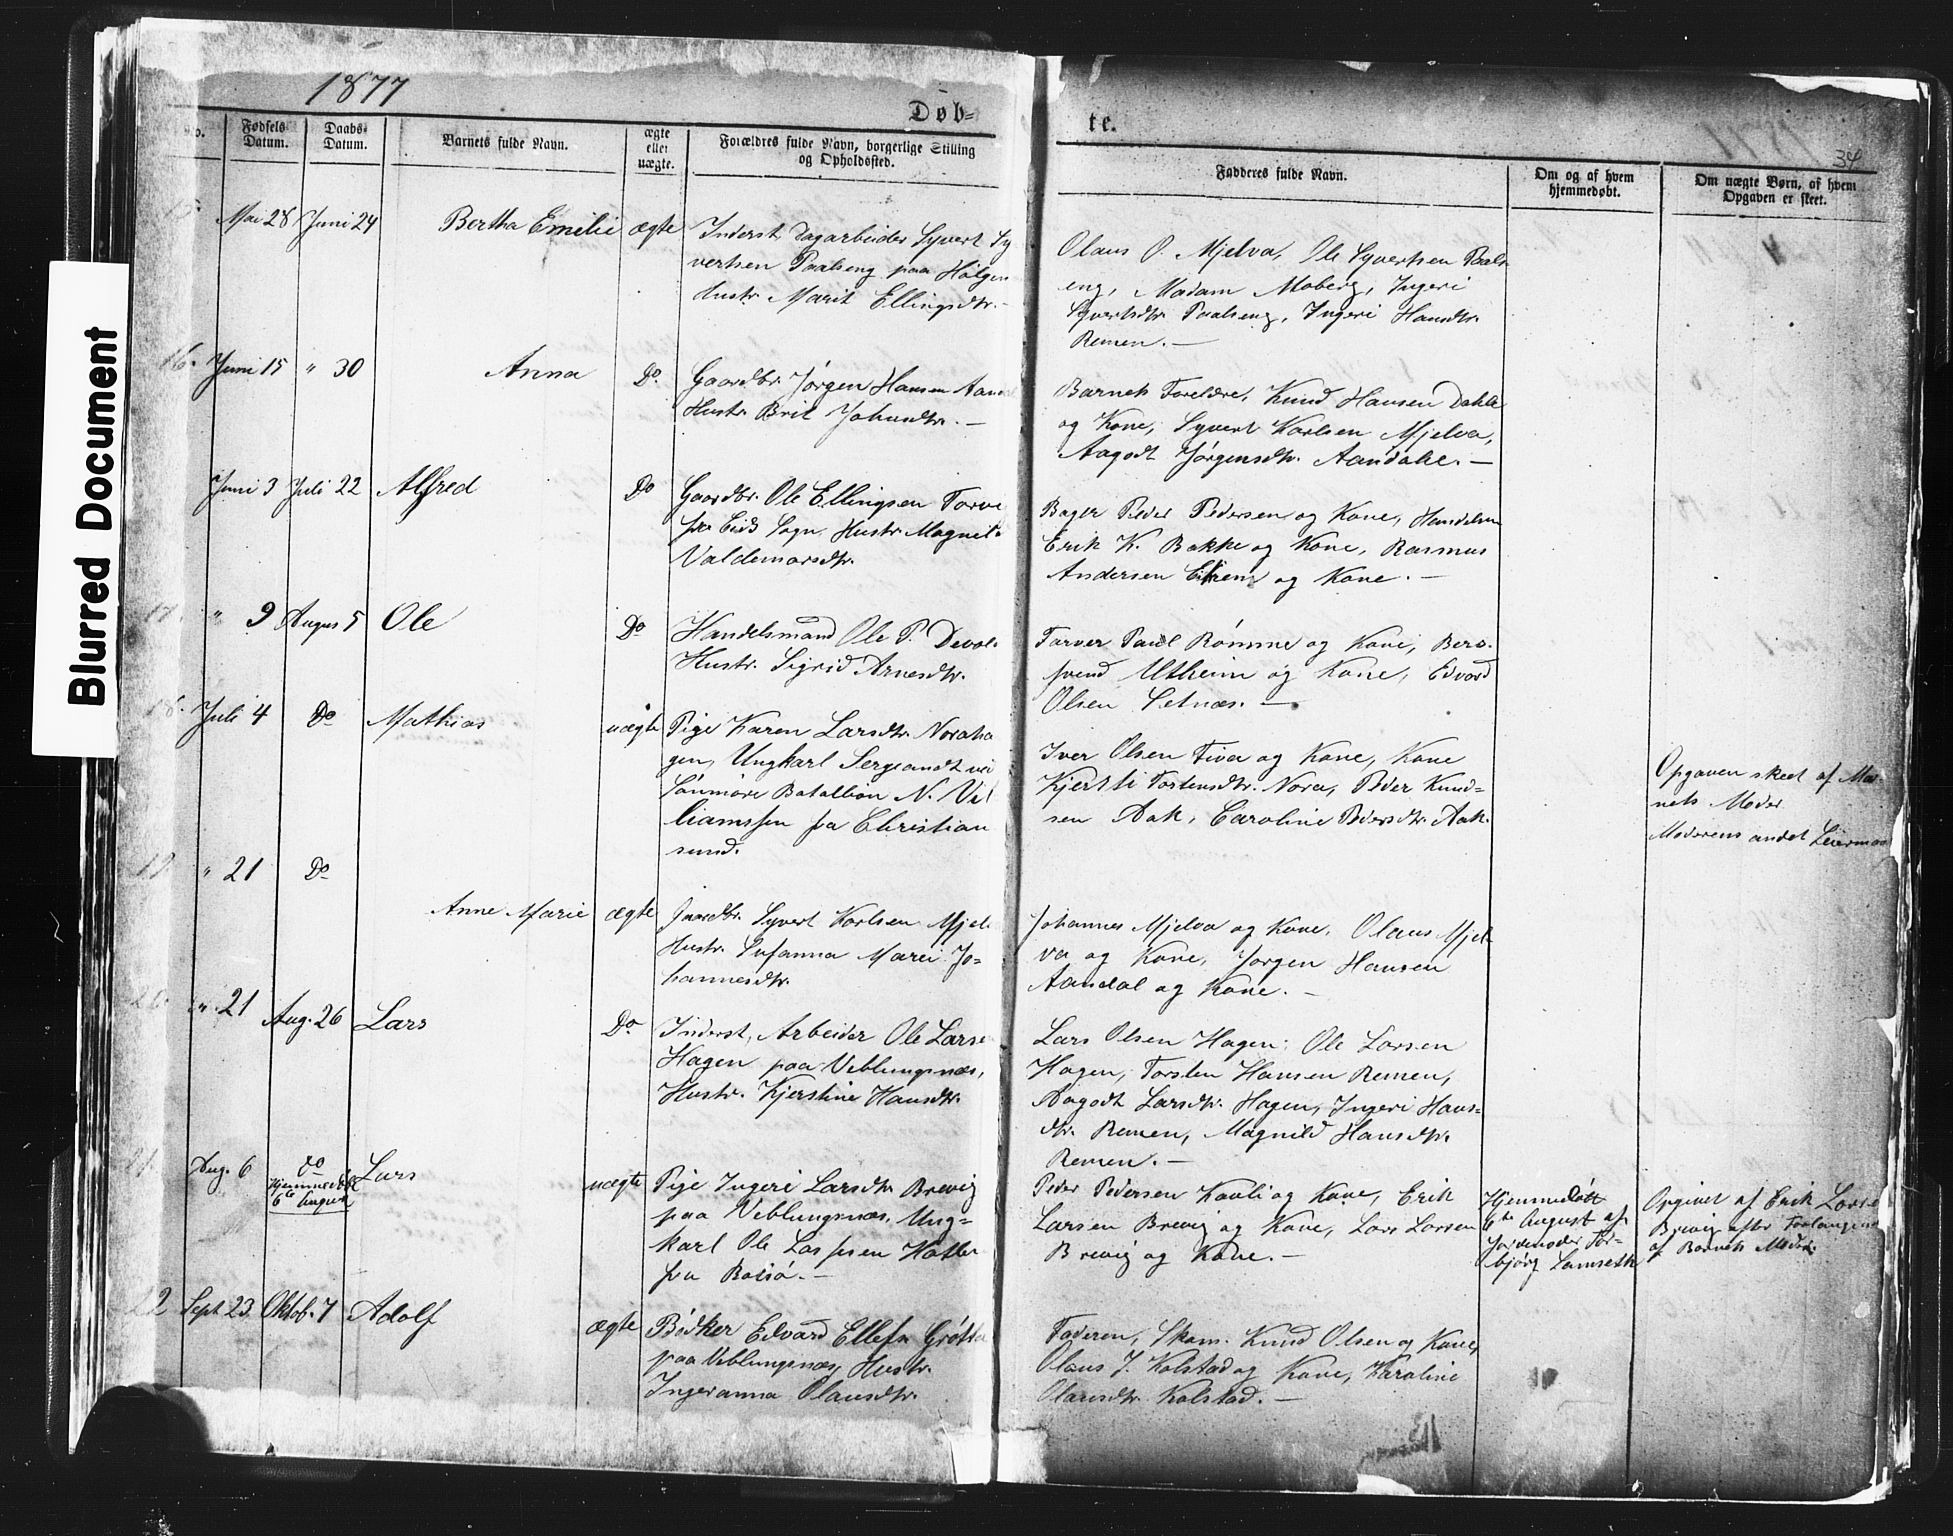 Blurred Document
1877
Døb-
te.
34
No.
Fødsels Datum.
Daabs Datum.
Barnets fulde Navn.
ægte eller uægte.
Forældres fulde Navn, borgerlige Stilling og Opholdssted.
Fadderes fulde Navn.
Om og af hvem hjemmedøbt.
Om uægte Børn, af hvem Opgaven er skeet.
15.
Mai 28
Juni 24
Bertha Emelie
ægte
Inderst, Dagarbeider Syvert Sy
vertsen Paalseng paa Holgen
Hustr. Marit Ellingsdtr.
Olaus O. Mjelva, Ole Syvertsen Paals
eng, Madam Moberg, Ingeri
Syvertsdtr. Paalseng, Ingeri Hansdtr.
Remen. —
16.
Juni 15
" 30
Anna
Do.
Gaardbr. Jørgen Hansen
Hustr. Brit Johansdtr. —
Barnets Forældre, Knud Hansen Dahle
og Kone, Syvert Karlsen Mjelva,
Aagodt Jørgensdtr. Aandahl. —
Juni 3
Juli 22
Alfred
Do
Gaardbr. Ole Ellingsen Torve
fra Eids Sogn, Hustr. Magnil
Valdemarsdtr.
Bager Peder Pedersen og Kone, Handelsm
Erik K. Bakke og Kone, Rasmus
Andersen Eikrem og Kone. —
17.
" 9
Augus 5
Ole
Do
Handelsmand Ole P. Devol.
Hustr. Sigrid Arnesdtr.
Farver Paul Rømme og Kone, Bero.
svend Utheim og Kone, Edvard
Olsen Setnæs. —
18.
Juli 4
Do
Mathias
uægte
Pige Karen Larsdtr. Noraha
gen, Ungkarl Sergeandt ved
Sønmøre Batallion N. Vil
liamssen fra Christian
sund.
Iver Olsen Fiva og Kone, Kone
Kjersti Tostensdtr. Nora, Peder Knud-
sen Aak, Caroline Pedersdtr. Aak.
Opgaven skeet af Bar-
nets Moder
Moderens andet Leiermaal
19
" 21
Do
Anne Marie
ægte
Gaardbr. Syvert Karlsen Mjel
Hustr. Susanna Marei Jo-
hannesdtr.
Johannes Mjelva og Kone, Olaus Mjel
va og Kone, Jørgen Hansen
Aandal og Kone. —
20.
" 21
Aug. 26
Lars
Do
Inderst, Arbeider Ole Larse
Hagen paa Veblungsnæs,
Hustr. Kjerstine Hansdtr.
Lars Olsen Hagen, Ole Larsen
Hagen, Torsten Hansen Remen,
Aagodt Larsdtr. Hagen, Ingeri Hans-
dtr. Remen, Magnild Hansdtr.
Remen. —
21.
Aug. 6
Do
Hjemmedøbt
6te August
Lars
uægte
Pige Ingeri Larsdtr Brevig
paa Veblungsnæs, Ung-
karl Ole Larssen
fra Bolsø. —
Peder Pedersen Kavli og Kone, Erik
Larsen Brevig og Kone, Lars Larsen
Brevig og Kone. —
Hjemmedøbt
6te August af
Jordemoder Tor-
bjørg Lamseth
Opgivet af Erik Larse
Brevig efter Forlangende
af Barnets Moder.
22
Sept 23
Oktob. 7
Adolf
ægte
Bødker Edvard Ellefs Grøtta
paa Veblungsnæs, Hustr.
Ingeranna Olausdtr.
Faderen, Skom. Knud Olsen og Kone,
Olaus J. Kolstad og Kone, Karoline
Olausdtr. Kolstad. —